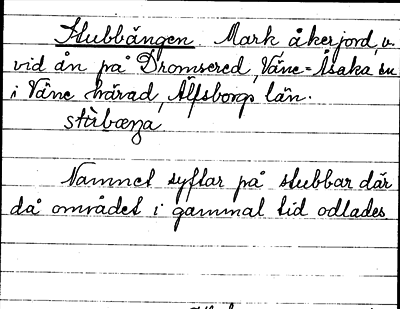 Stubbängen Mark åkerjord, v.
vid ån på Dromsered, Väne-Åsaka sn
i Väne härad, Älfsborgs län.
Namnet syftar på stubbar där
då området i gammal tid odlades